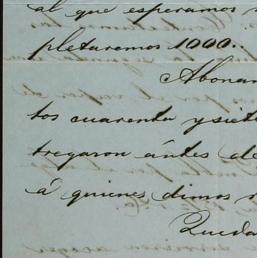 al que esperamos
pletaremos 1000..
Abonam
tos cuarenta y siete
tregaron ántes de
á quienes dimos
Queda